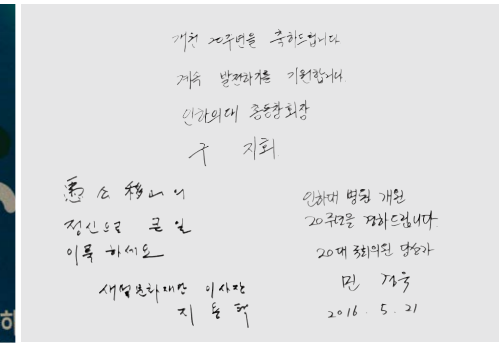 개원 20주년을 축하드립니다
계속 발전하기를 기원합니다.
인하의대 총동창회장
구 지회
愚公移山의
정신으로 큰 일
이룩 하세요
새얼문화재단 이사장
지용택
인하대 병원 개원
20주년을 경하드립니다.
20대 국회의원 당선자
민 경욱
2016. 5. 21
하